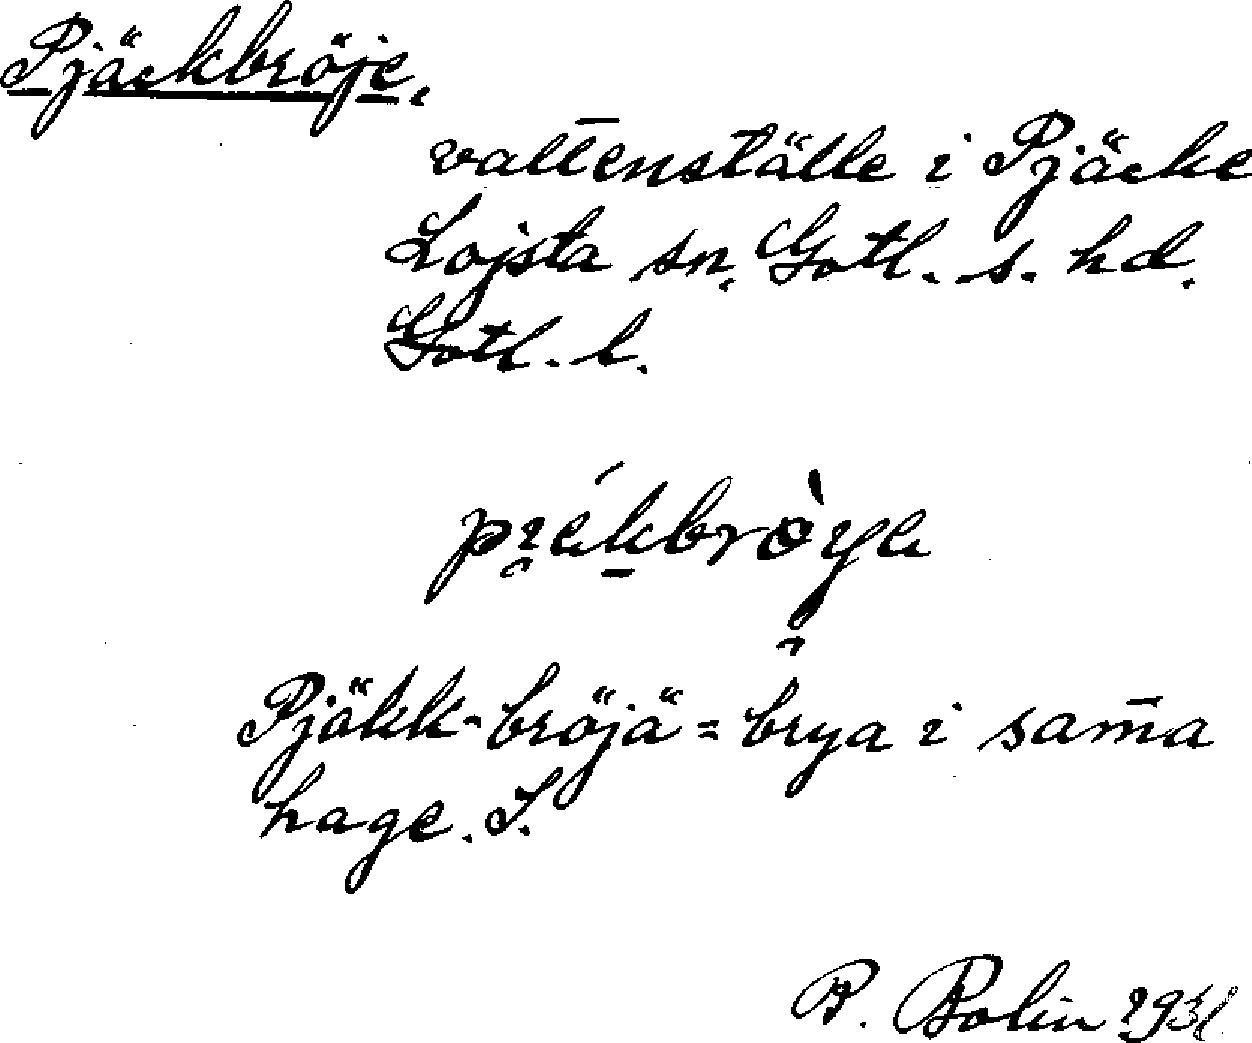 Pjäckbröje.
vattenställe i Pjäcke
Lojsta sn. Gotl. s. hd.
Gotl. l.
Pjäkk-bröjä = brya i sam̄a
hage. S.
B. Bolin 1931